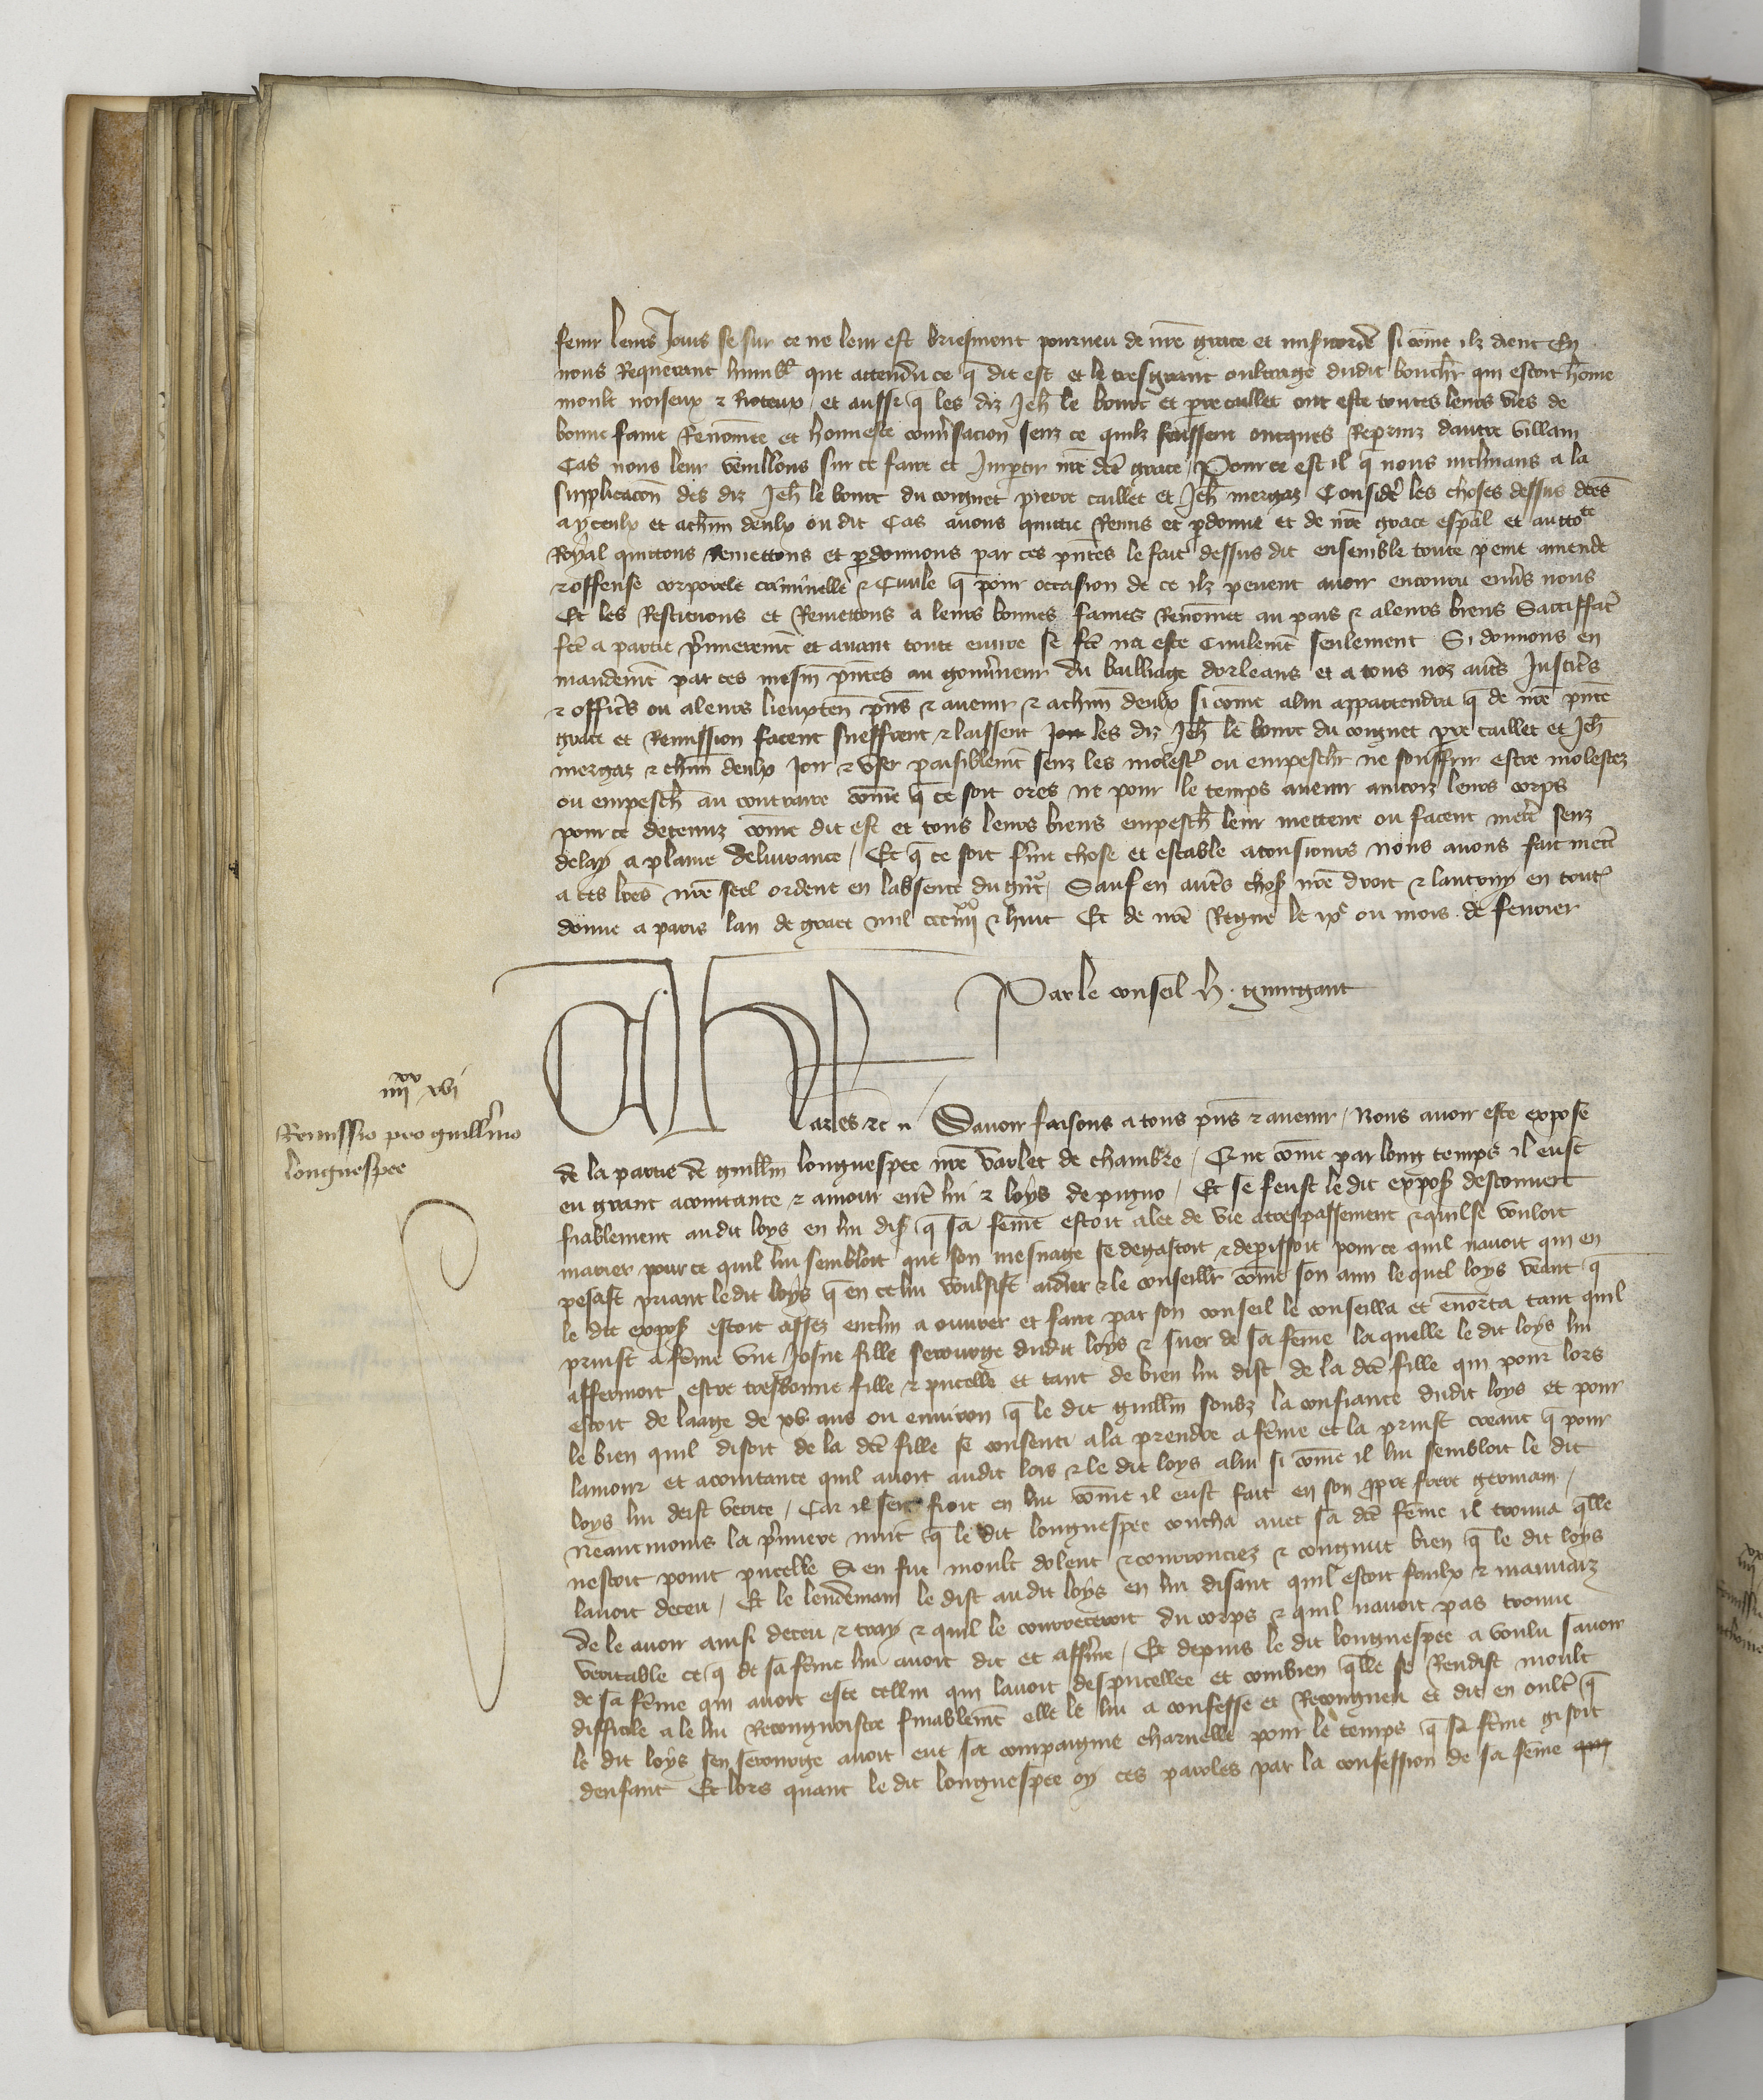 fenir leurs Jours se sur ce ne leur est briefment pourveu de nre grace et misericorde si come ilz dient En
nous Requerant humblt que attendu ce q dit est et le tresgrant oultrage dudit bouchr qui estoit home
moult noiseux & Rioteux / et aussi q les diz Jeh le bourc et pre caillet ont este toutes leurs vies de
bonne fame Renomee et honneste conversacion senz ce quilz feussent oncques Reprinz dautre villain
Cas nous leur veuillons sur ce faire et Impartir nre dce grace / Pour ce est il q nous inclinans a la
supplicacon des diz Jeh le bourc du coignet pierre caillet et Jeh mergaz Considere les choses dessus dces
a yceulx et achun deulx ou dit Cas avons quitte Remis et pdonne et de nre grace espal et auctote
Royal quittons Remettons et pdonnons par ces pntes le fait dessus dit ensemble toute peine amende
& offense corporele criminelle & Civile q pour occasion de ce ilz pevent avoir encouru envs nous
Et les Restituons et Remettons a leurs bonnes fames Renomee au pais & aleurs biens Satiffacc
fce a partie primierement et avant toute euvre se fce na este Civilemt seulement Si donnons en
mandemt par ces mesm pntes au gouvneur du bailliage dorleans et a tous noz autes Justicrs
& officrs ou aleurs lieuxten pns & avenir & achun deulx si come alui appartendra q de nre pnte
grace et Remission facent sueffrent & laissent Joir les diz Jeh le bourc du congnet pre caillet et Jeh
mergaz & chun deulx Joir & user paisiblemt senz les molester ou empeschr ne souffrir estre molestez
ou empesch au contraire come q ce soit ores ne pour le temps avenir aincoiz leurs corps
pour ce detenuz come dit est et tous leurs biens empesch leur mettent ou facent mettre senz
delay a plaine delivrance / Et q ce soit ferme chose et estable atousiours nous avons fait mettre
a ces lres nre seel ordene en labsence du grt / Sauf en autes choses nre droit & lautruy en toutes
donne a paris lan de grace mil ccc iiiixx & huit Et de nre Regne le ixe ou mois de fevrier
Par le conseil h. guingant
iiiixx xvi
Remissio pro guillmo
longuespee
Charles &c Savoir faisons a tous pns & avenir / Nous avoir este expose
de la partie de guillm longuespee nre varlet de chambre / Que come par long temps il eust
eu grant acointance & amour entre lui & loys de pugno / Et se feust le dit expos descouvert
fiablement au dit loys en lui dis q sa feme estoit alee de vie a trespassement & quil se vouloit
marier pour ce quil lui sembloit que son mesnage se degastoit & deperissoit pource quil navoit qui en
pesast priant le dit loys q en ce lui voulsist aidier & le conseillr come son ami le quel loys veant q
le dit expos estoit assez enclin a ouvrer et faire par son conseil le conseilla et enorta tant quil
prinst a feme une Josne fille serourge dudit loys & suer de sa feme la quelle le dit loys lui
affermoit estre tresbonne fille & pucelle et tant de bien lui dist de la dce fille qui pour lors
estoit de laage de xv ans ou environ q le dit guillm soubz la confiance dudit loys et pour
le bien quil disoit de la dce fille se consenti a la prendre a feme et la prinst creant q pour
lamour et acointance quil avoit audit lois & le dit loys alui si come il lui sembloit le dit
loys lui deist verite / Car il se fioit en lui come il eust fait en son ppre frere germain /
Neantmoins la pmiere nuit q le dit longuespee coucha avec sa dce feme il trouva qlle
nestoit point pucelle Si en fut moult dolent & courrouciez & congnut bien q le dit loys
lavoit deceu / Et le lendemain le dist au dit loys en lui disant quil estoit faulx & mauvaiz
de le avoir ainsi deceu & tray & quil le courreceroit du corps & quil navoit pas trouve
veritable ce q de sa feme lui avoit dit et afferme / Et depuis le dit longuespee a voulu savoir
de sa feme qui avoit este cellui qui lavoit despucellee et combien qlle se Rendist moult
difficile a le lui Recongnoistre finablemt elle le lui a confesse et Recongneu et dit en oultre q
le dit loys sen serourge avoit eue sa compaignie charnelle pour le temps q sa feme gisoit
denfant Et lors quant le dit longuespee oy ces paroles par la confession de sa feme qui